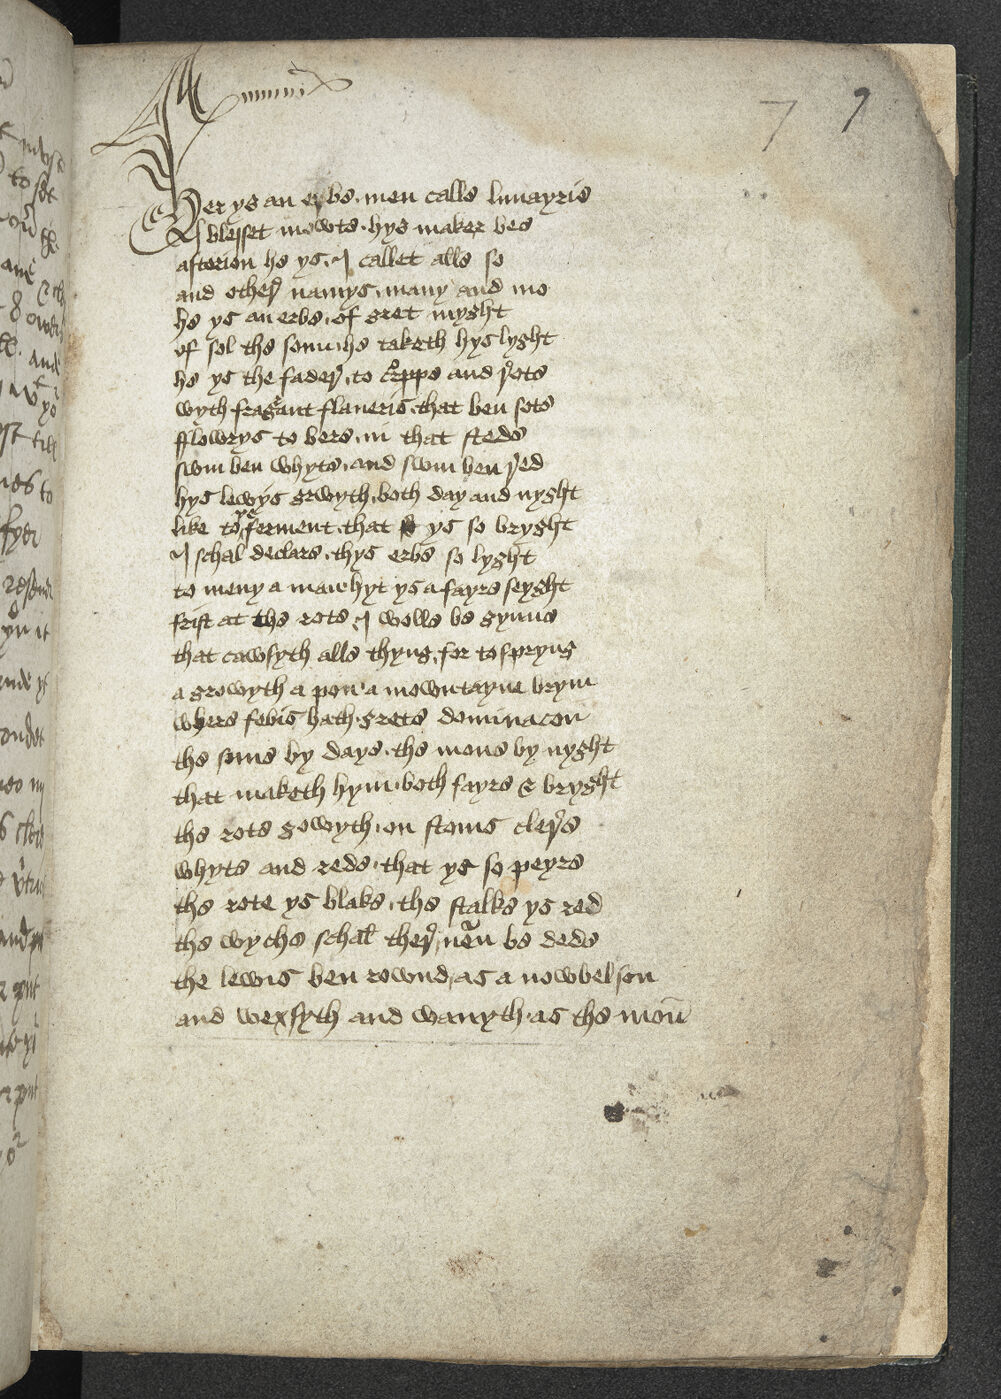 7 9
Her ys an erbe men calle lunayrie
I blesset mowte hys maker be
asterion he ys I callet alle so
and other namys many and mo
he ys an erbe of gret myght
of sol the sonne he taketh hys lyght
he ys the fader to croppe and rote
wyth fragrant flaueris that ben sote
fflowrys to bere in that stede
swm ben whyte and swm ben red
hys lewys grwyth both day and nyght
like to ye ferment that ys so bryght
I schal declare thys erbe so lyght
to meny a man hyt ys a fayre seyght
frist at the rote I wolle be gynne
that cawsyth alle thyng for to spryng
a growyth a pon a mowntayne brym
where febis hath grete dominacon
the sune by daye the mone by nyght
that maketh hym both fayre & bryght
the rote gowyth on stonis clere
whyte and rede that ys so peyre
the rote ys blake the stalke ys red
the wyche schal ther neuer be dede
the lewis ben rownd as a nowbel son
and wexsyth and wanyth as the mon